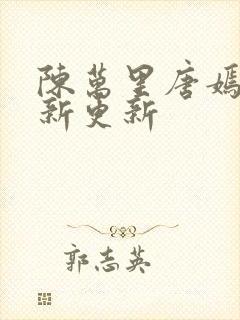 陳萬里唐嫣
新更新
郭志英